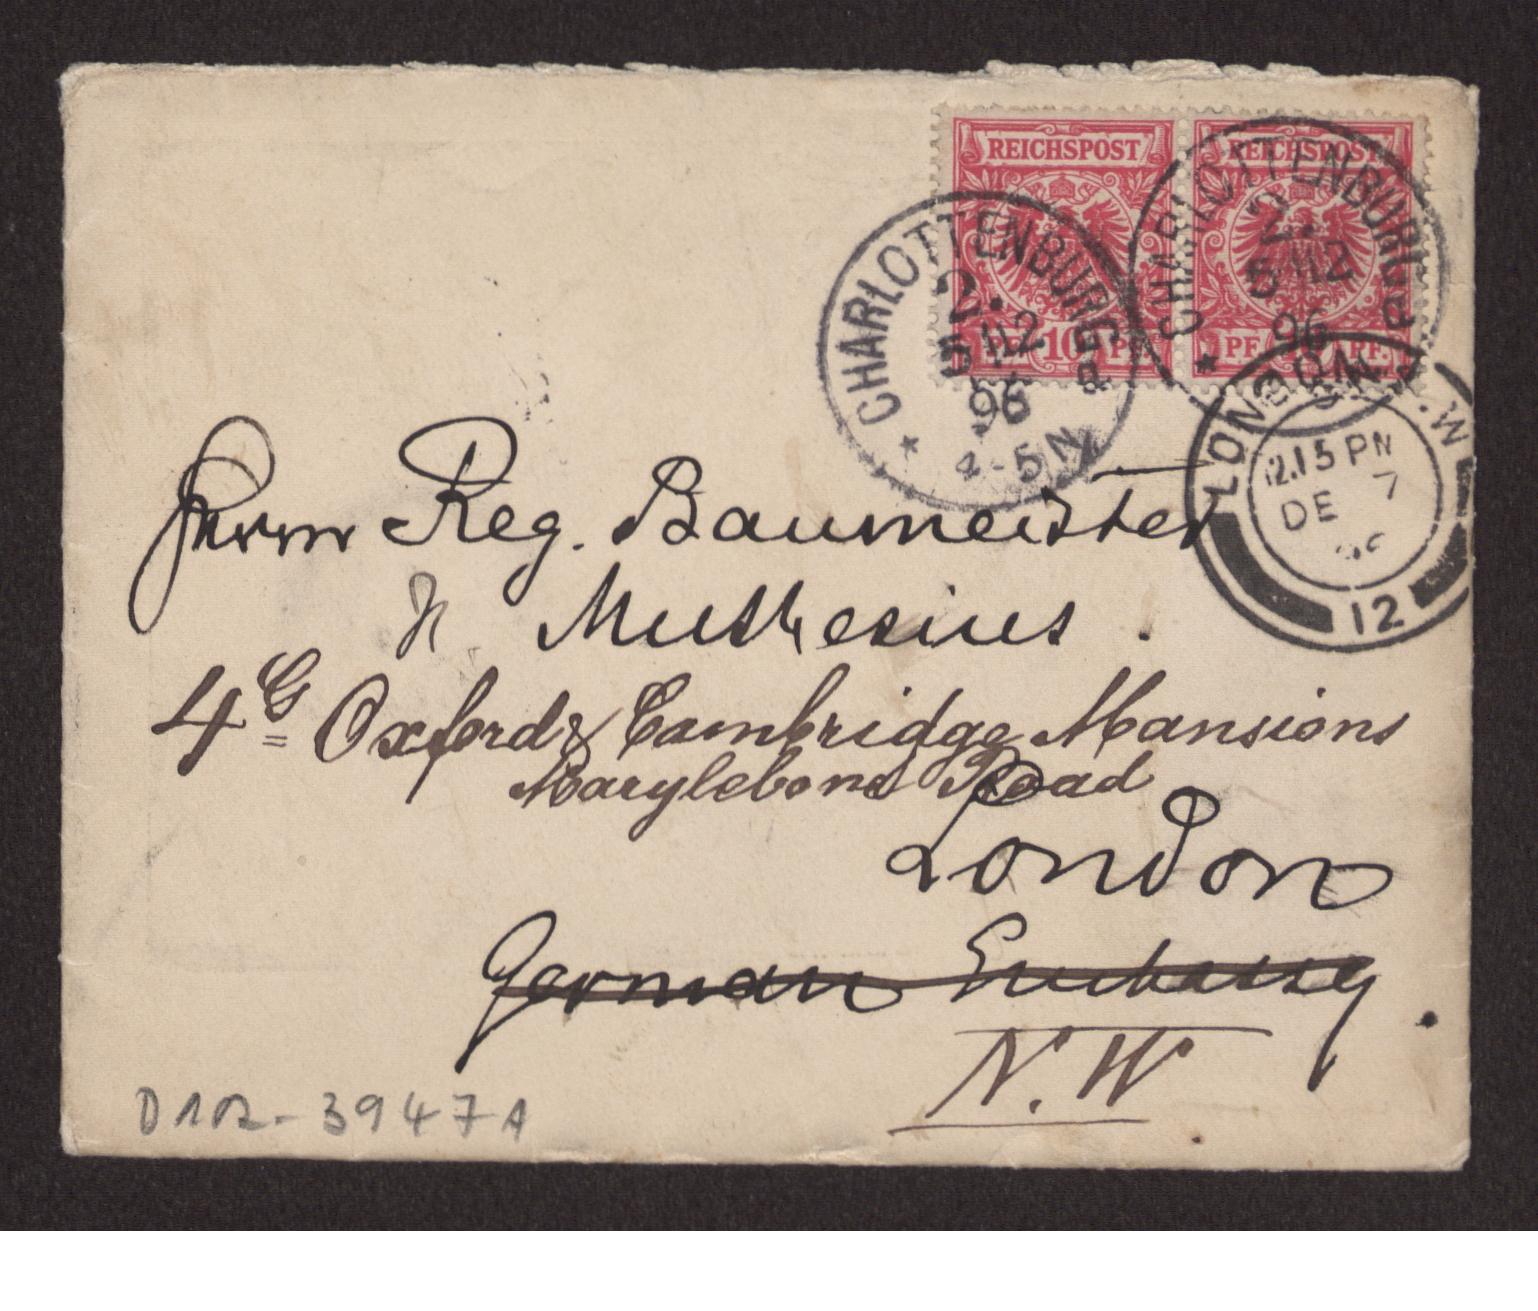 REICHSPOST REICHSPOST
PF. 10 PF. PF. PF.
CHARLOTTENBURG
2.
5 12
96
4-5N
CHARLOTTENBURG
2.
5 12
96
LONDON . W
12.15 PM
DE 7
12
Herrn Reg. Baumeister
H Muthesius.
4G Oxford & Cambridge Mansions
Marylebone Road
London
German Embassy.
N.W
D102-3947A